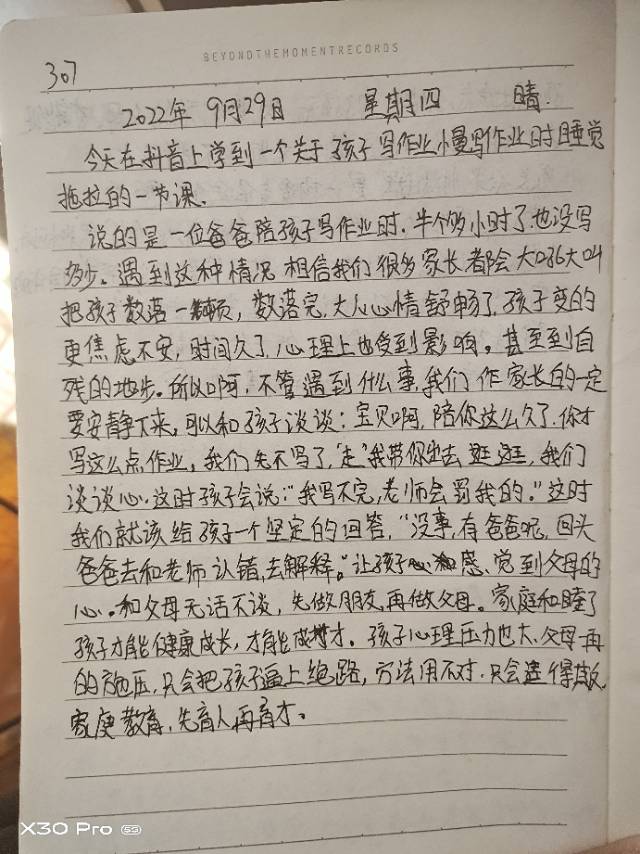 BEYONDTHEMOMENTRECORDS
307
2022年 9月29日 星期四 晴.
今天在抖音上学到一个关于孩子写作业慢写作业时睡觉
拖拉的一节课.
说的是一位爸爸陪孩子写作业时.半个多小时了也没写
多少。遇到这种情况 相信我们很多家长都会大吼大叫
把孩子数落一顿,数落完,大人心情舒畅了,孩子变的
更焦虑不安,时间久了,心理上也受到影响。甚至到自
残的地步。所以啊,不管遇到什么事,我们作家长的一定
要安静下来,可以和孩子谈谈:宝贝啊,陪你这么久了,你才
写这么点作业,我们先不写了,“走”我带你出去逛逛,我们
谈谈心.这时孩子会说:“我写不完,老师会罚我的.”这时
我们就该给孩子一个坚定的回答,“没事,有爸爸呢,回头
爸爸去和老师认错,去解释。”让孩子感觉到父母的
心.和父母无话不谈,先做朋友,再做父母。家庭和睦了
孩子才能健康成长,才能成才.孩子心理压力也大.父母一再
的施压.只会把孩子逼上绝路,方法用不对.只会适得其反.
家庭教育,先育人再育才。
X30 Pro 5G